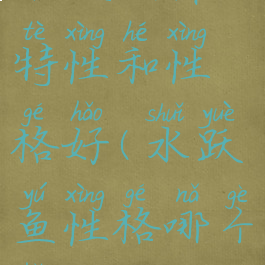 tè xìng hé xìng
特性和性
gé hǎo shuǐ yuè
格好(水跃
yú xìng gé nǎ gè
鱼性格哪个